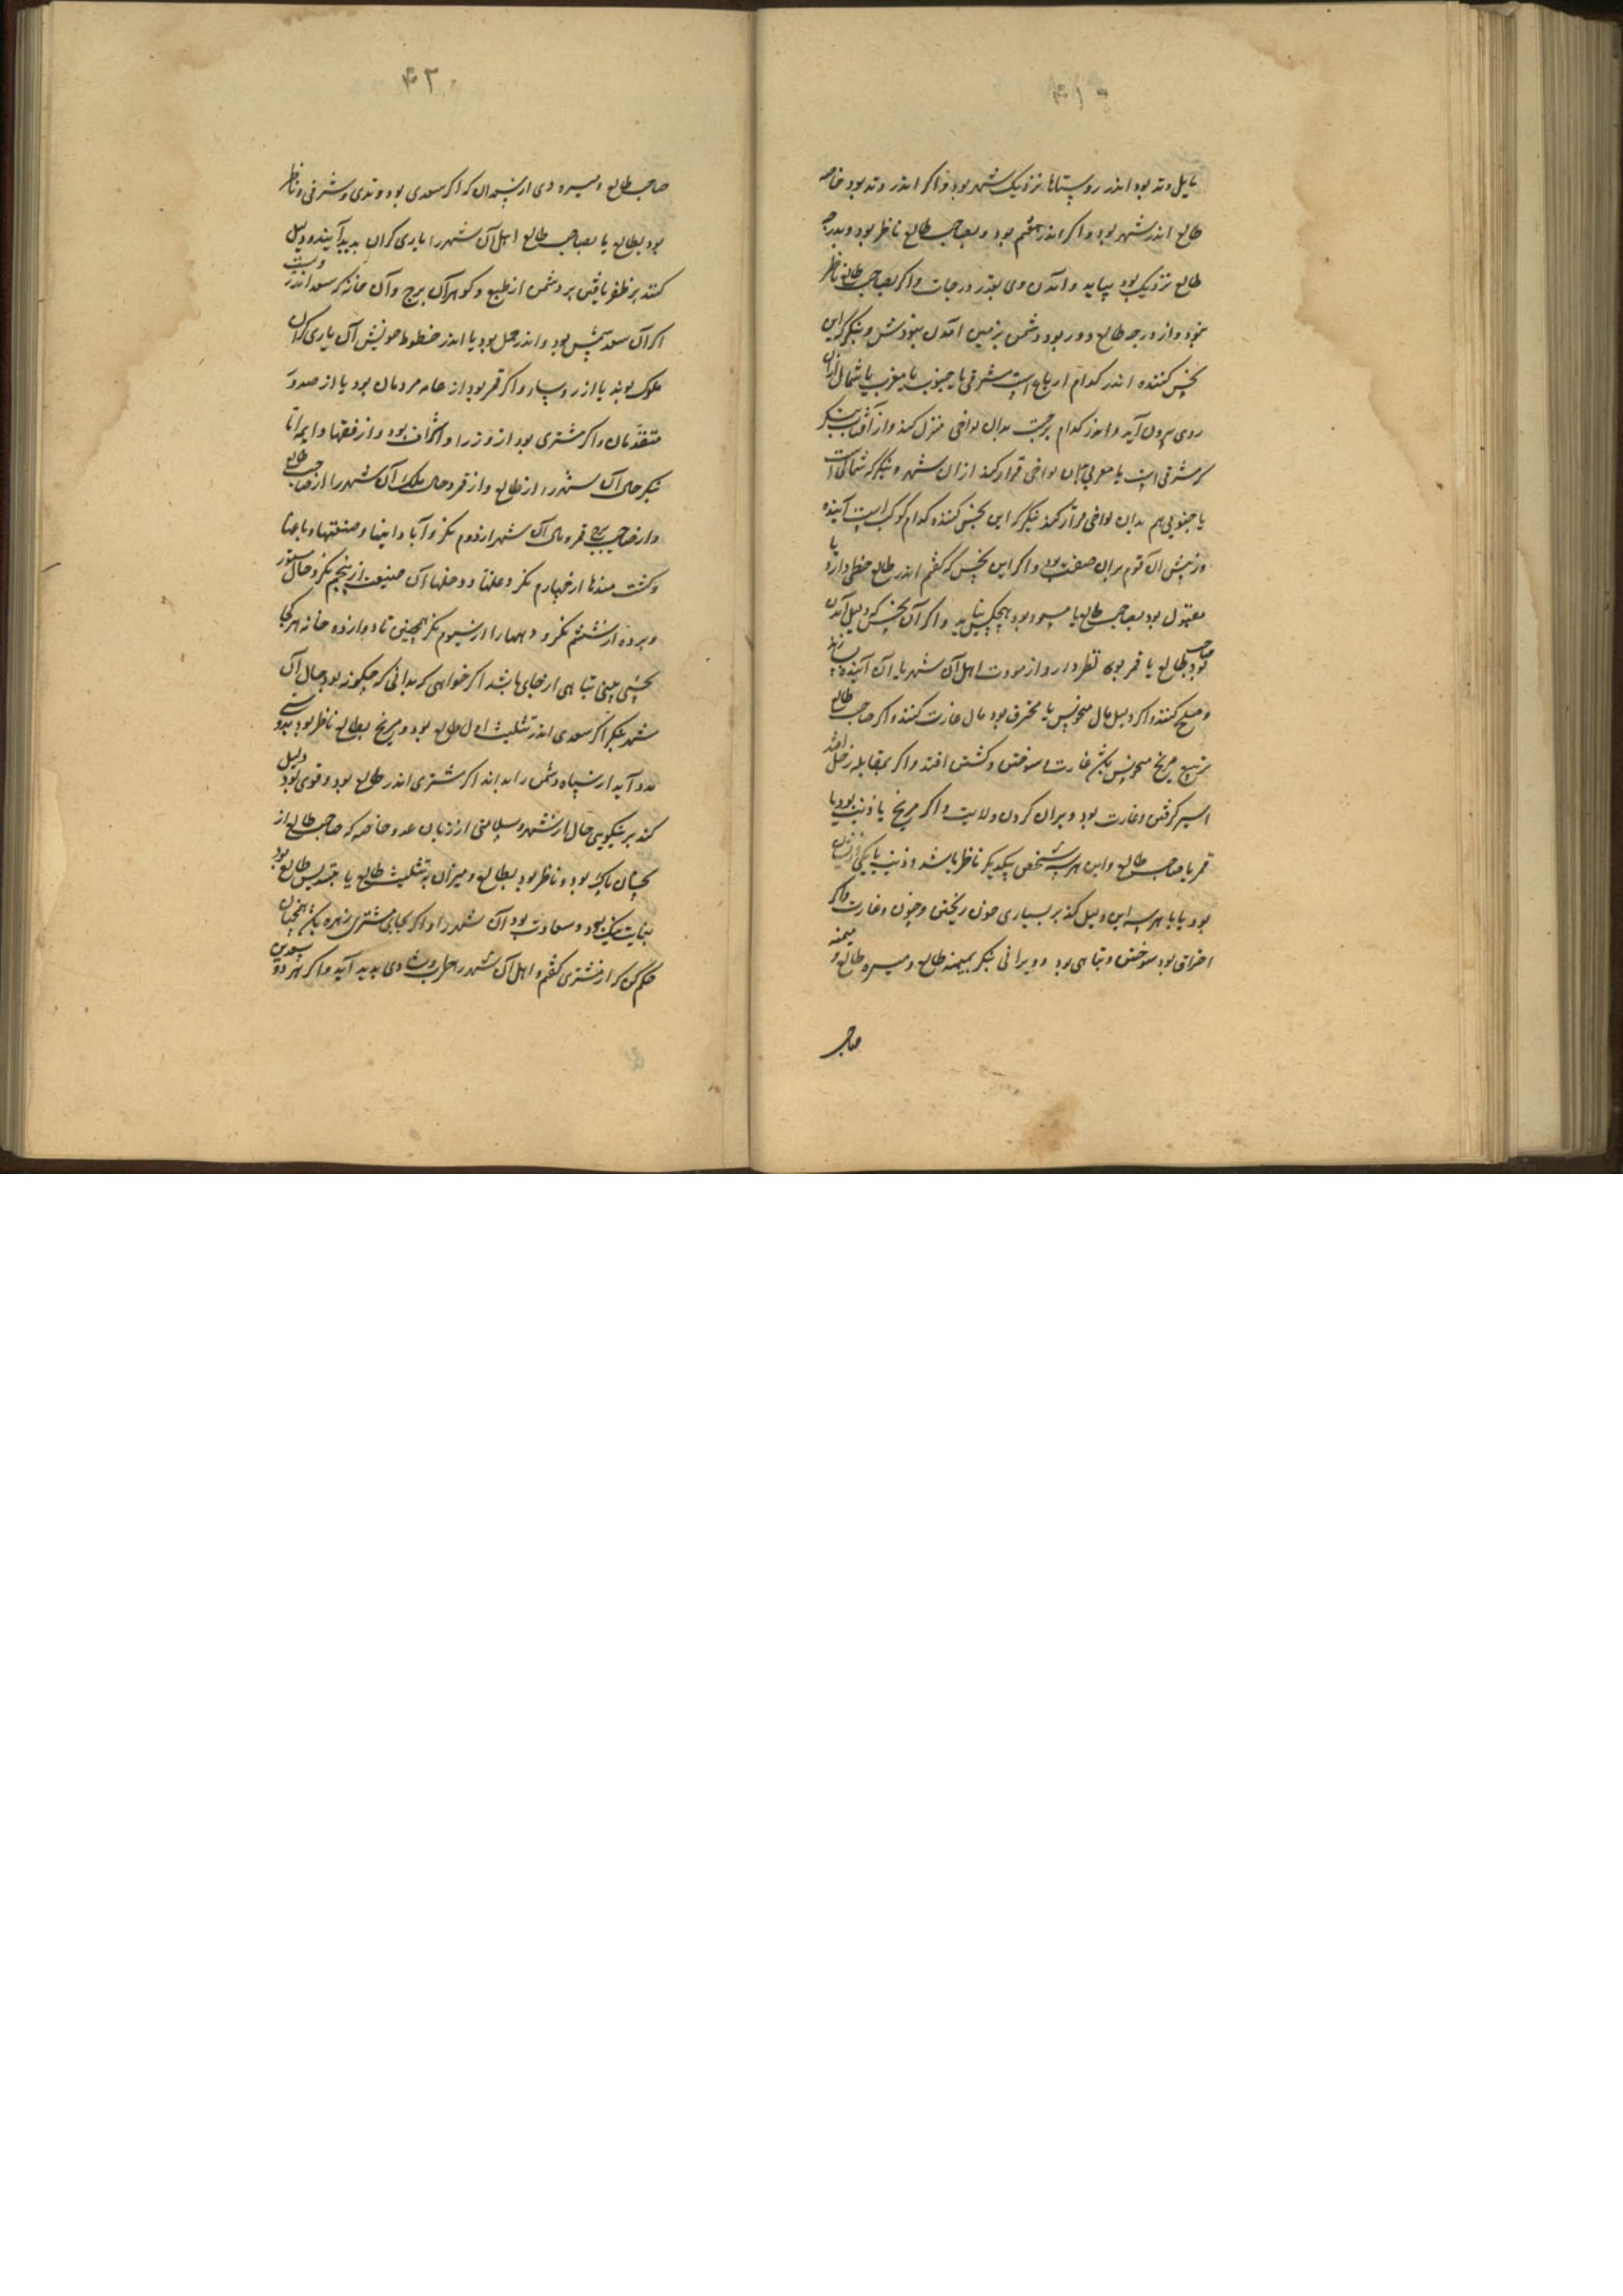 ۴۱
مایل وتد بود اندر روستاها نزدیک شهر بود و اکر اندر وتد بود خاصه
طالع اندر شهر بود و اکر اندر هفتم بود و بصاحب طالع ناظر بود و بدرجه
طالع نزدیک بود بیاید و آمدن وی بقدر درجات و اکر بصاحب طالع ناظر
نبود و از درجه طالع دور بود دشمن بزمین آمدن بنکر که این
نحس کننده اندر کدام ارباع است مشرقی یا جنوب یا مغرب یا شمال از آن
روی بیرون آید و اندر کدام برجست بدان نواحی منزل کند و از آفتاب بنکر
کر مشرقی است یا مغربی بدان نواحی قرار کند از آن شهر و بنکر که شمالی است
یا جنوبی هم بدان نواحی قرار کند بنکر که این نحس کننده کدام کوکب است آینده
منش آن قوم بران صفت بود و اکر این نحس که کفتم اندر طالع حظی دارد یا
مقبول بود بصاحب طالع یا مسعود بود هیچکس نیاید و اکر آن نحس که دلیل آمدن
بود بطالع یا قمر بود نظر دارد از مودت اهل آن شهر با آن آینده
و صلح کنند و اکر دلیل مال منحوس یا محترق بود مال غارت کنند و اکر صاحب طالع
بتربیع مریخ منحوس باشد غارت و سوختن و کشتن افتد و اکر بمقابله زحل افتد
اسیر کرفتن و غارت بود و ویران کردن ولایت و اکر مریخ با ذنب بود یا
قمر با صاحب طالع و این هر سه شخص بیکدیکر ناظر باشد و ذنب با یکی ازیشان
بود یا با هر سه این دلیل کند بر بسیاری خون ریختن و غارت و اکر
احتراق بود سوختن و تباهی بود و ویرانی بنکر بمیمنه طالع و میسره طالع و میمنه
صاحب
۴۲
صاحب طالع و میسره وی ازیشان که اکر سعدی بود وتدی و شرقی و ناظر
بود بطالع یا بصاحب طالع اهل آن شهر را یاری کران پدید آیند و دلیل
کنند بر ظفر یافتن بر دشمن از طبع و کوهر آن برج و آن خانه که سعد اندر ویست
اکر آن سعد شمس بود و اندر حمل بود یا اندر حظوظ خویش آن یاری کران
ملوک بوند یا از رؤسا و اکر قمر بود از عامه مردمان بود یا از صدور
متقدمان و اکر مشتری بود از وزرا و اشراف بود و از فقها و ایمه اما
بنکر حال آن شهر را از طالع و از قمر و حال ملک آن شهر را از صاحب طالع
و از صاحب برج قمر و مال آن شهر از دوم نکر
و کشتمندها از چهارم نکر و غلتها و دخلها آن از پنجم نکر و حال ستور
و برده از ششم نکر و دهها را از سیوم نکر همچنین تا دوازده خانه هر کجا
نحسی بینی تباهی از جای باشد اکر خواهی که بدانی که چکونه بود حال آن
شهر بنکر اکر سعدی اندر تثلیث اول طالع بود و مریخ بطالع ناظر بود بدوستی
مدد آید از سپاه دشمن اکر مشتری اندر طالع بود و قوی بود دلیل
کند بر نیکویی حال از شهر و سلامتی از زیان عدو خاصه که صاحب طالع از
نحسان پاک بود و ناظر بود بطالع و میزان به تثلیث طالع یا بتسدیس طالع بود
بغایت نیک بود و سعادت بود آن شهر را و اکر بجای مشتری زهره باشد همچنان
حکم کن که از مشتری کفتم و اهل آن شهر را طرب و شادی پدید آید و اکر هر دو سعدین